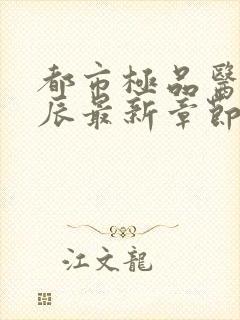 都市極品醫
辰最新章節
江文龍